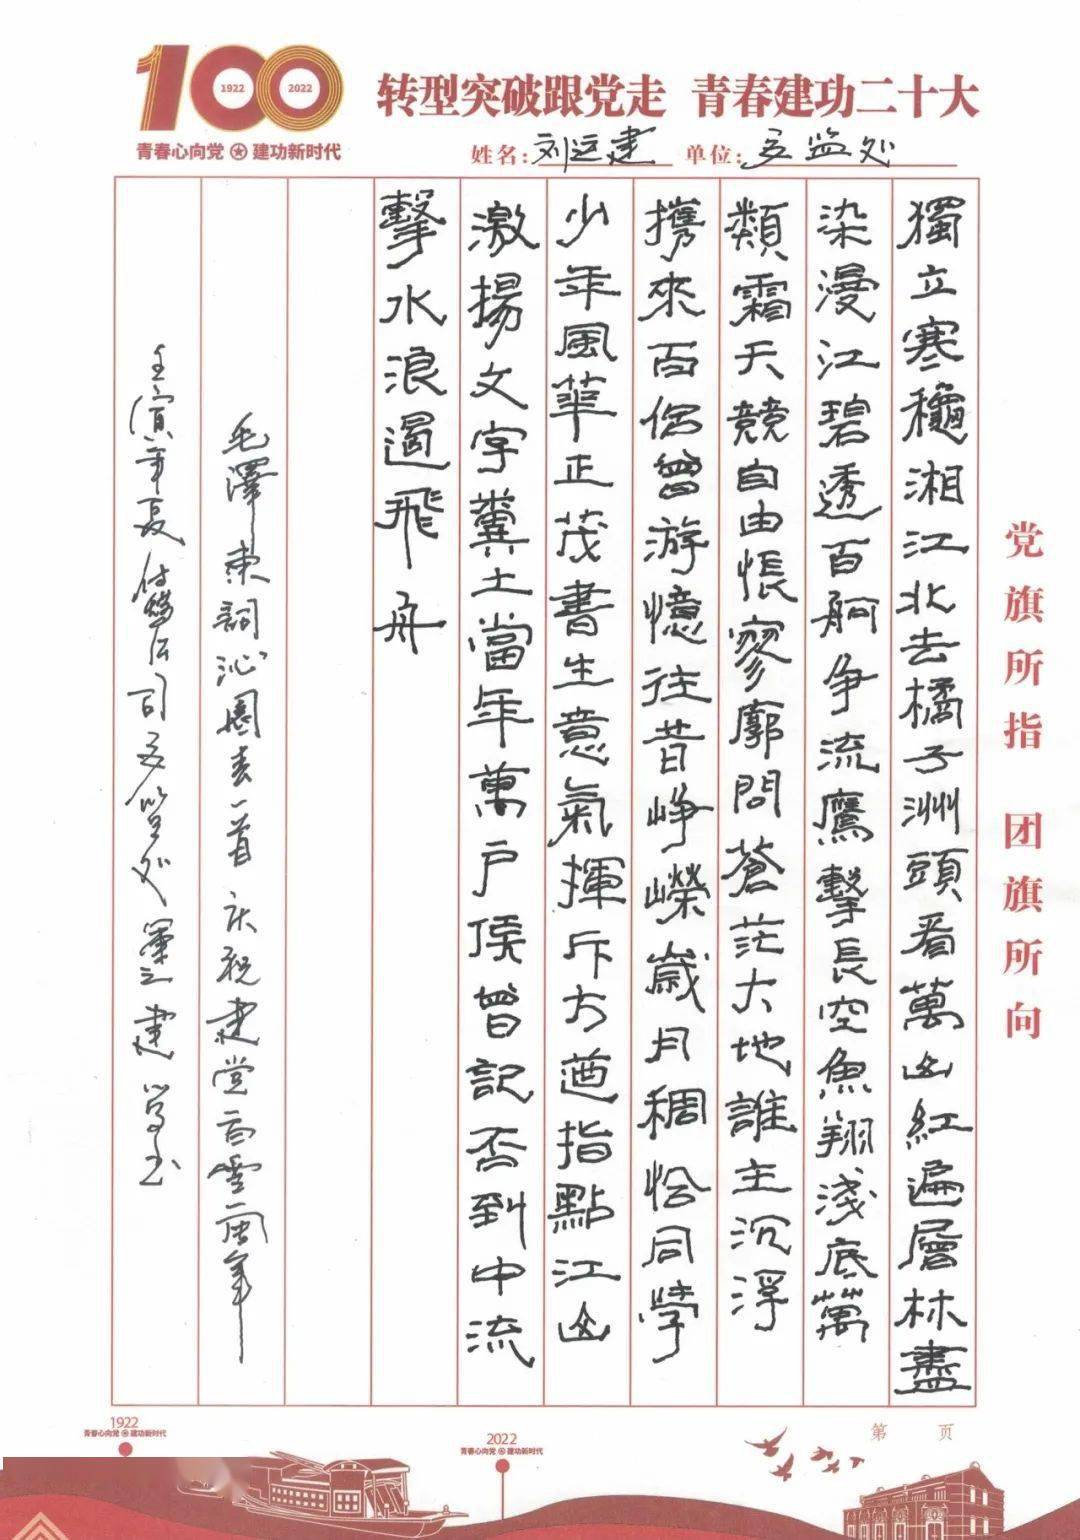 100
1922 2022
青春心向党 建功新时代
转型突破跟党走 青春建功二十大
姓名: 刘运建 单位: 监处
獨立寒穐湘江北去橘子洲頭看萬山紅遍層林盡
染漫江碧透百舸争流鷹擊長空魚翔淺底萬
類霜天競自由悵寥廓問蒼茫大地誰主沉浮
攜來百侶曾游憶往昔崢嶸歲月稠恰同學
少年風華正茂書生意氣揮斥方遒指點江山
激揚文字糞土當年萬户侯曾記否到中流
擊水浪遏飛舟
毛澤東詞沁園春一首 庆祝建党百零一周年
壬寅年夏 公司 处 運建 书
党旗所指 团旗所向
第 页
1922
青春心向党 建功新时代
2022
青春心向党 建功新时代